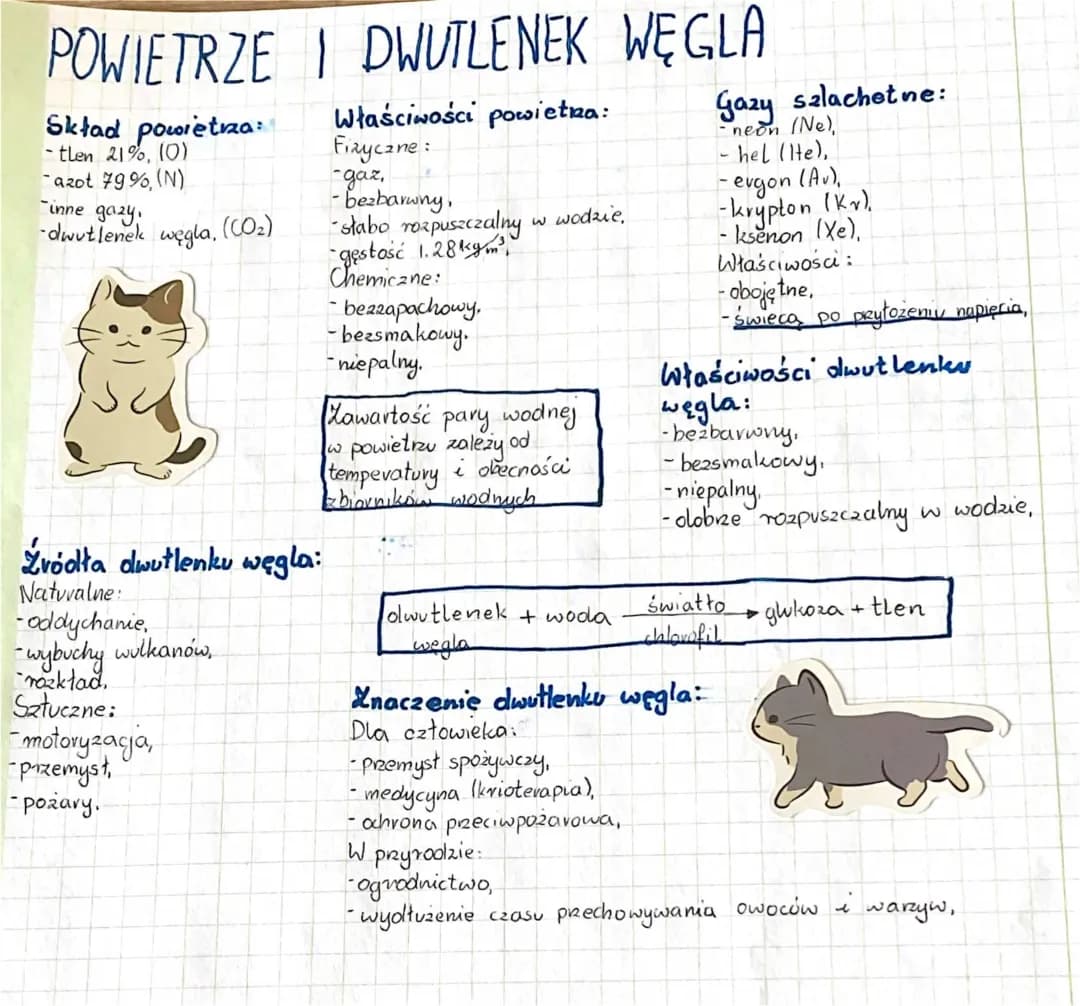 POWIETRZE I DWUTLENEK WĘGLA
Skład powietrza:
- tlen 21%, (O)
- azot 79%, (N)
- inne gazy,
- dwutlenek węgla, (CO2)
Właściwości powietrza:
Fizyczne:
- gaz,
- bezbarwny,
- słabo rozpuszczalny w wodzie,
- gęstość 1.28 kg/m³,
Chemiczne:
- bezzapachowy,
- bezsmakowy.
- niepalny.
Zawartość pary wodnej
w powietrzu zależy od
temperatury i obecności
zbiorników wodnych
Gazy szlachetne:
- neon (Ne),
- hel (He),
- ergon (Ar),
- krypton (Kr),
- ksenon (Xe),
Właściwości:
- obojętne,
- świecą po przyłożeniu napięcia,
Właściwości dwutlenku
węgla:
- bezbarwny,
- bezsmakowy,
- niepalny,
- dobrze rozpuszczalny w wodzie,
Źródła dwutlenku węgla:
Naturalne:
- oddychanie,
- wybuchy wulkanów,
- rozkład,
Sztuczne:
- motoryzacja,
- przemysł,
- pożary.
dwutlenek + woda światło → glukoza + tlen
węgla chlorofil
Znaczenie dwutlenku węgla:
Dla człowieka:
- przemysł spożywczy,
- medycyna (krioterapia),
- ochrona przeciwpożarowa,
W przyrodzie:
- ogrodnictwo,
- wydłużenie czasu przechowywania owoców i warzyw,